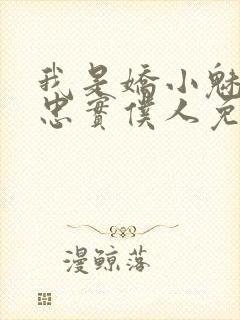 我是嬌小魅
忠實僕人免
漫鯨落